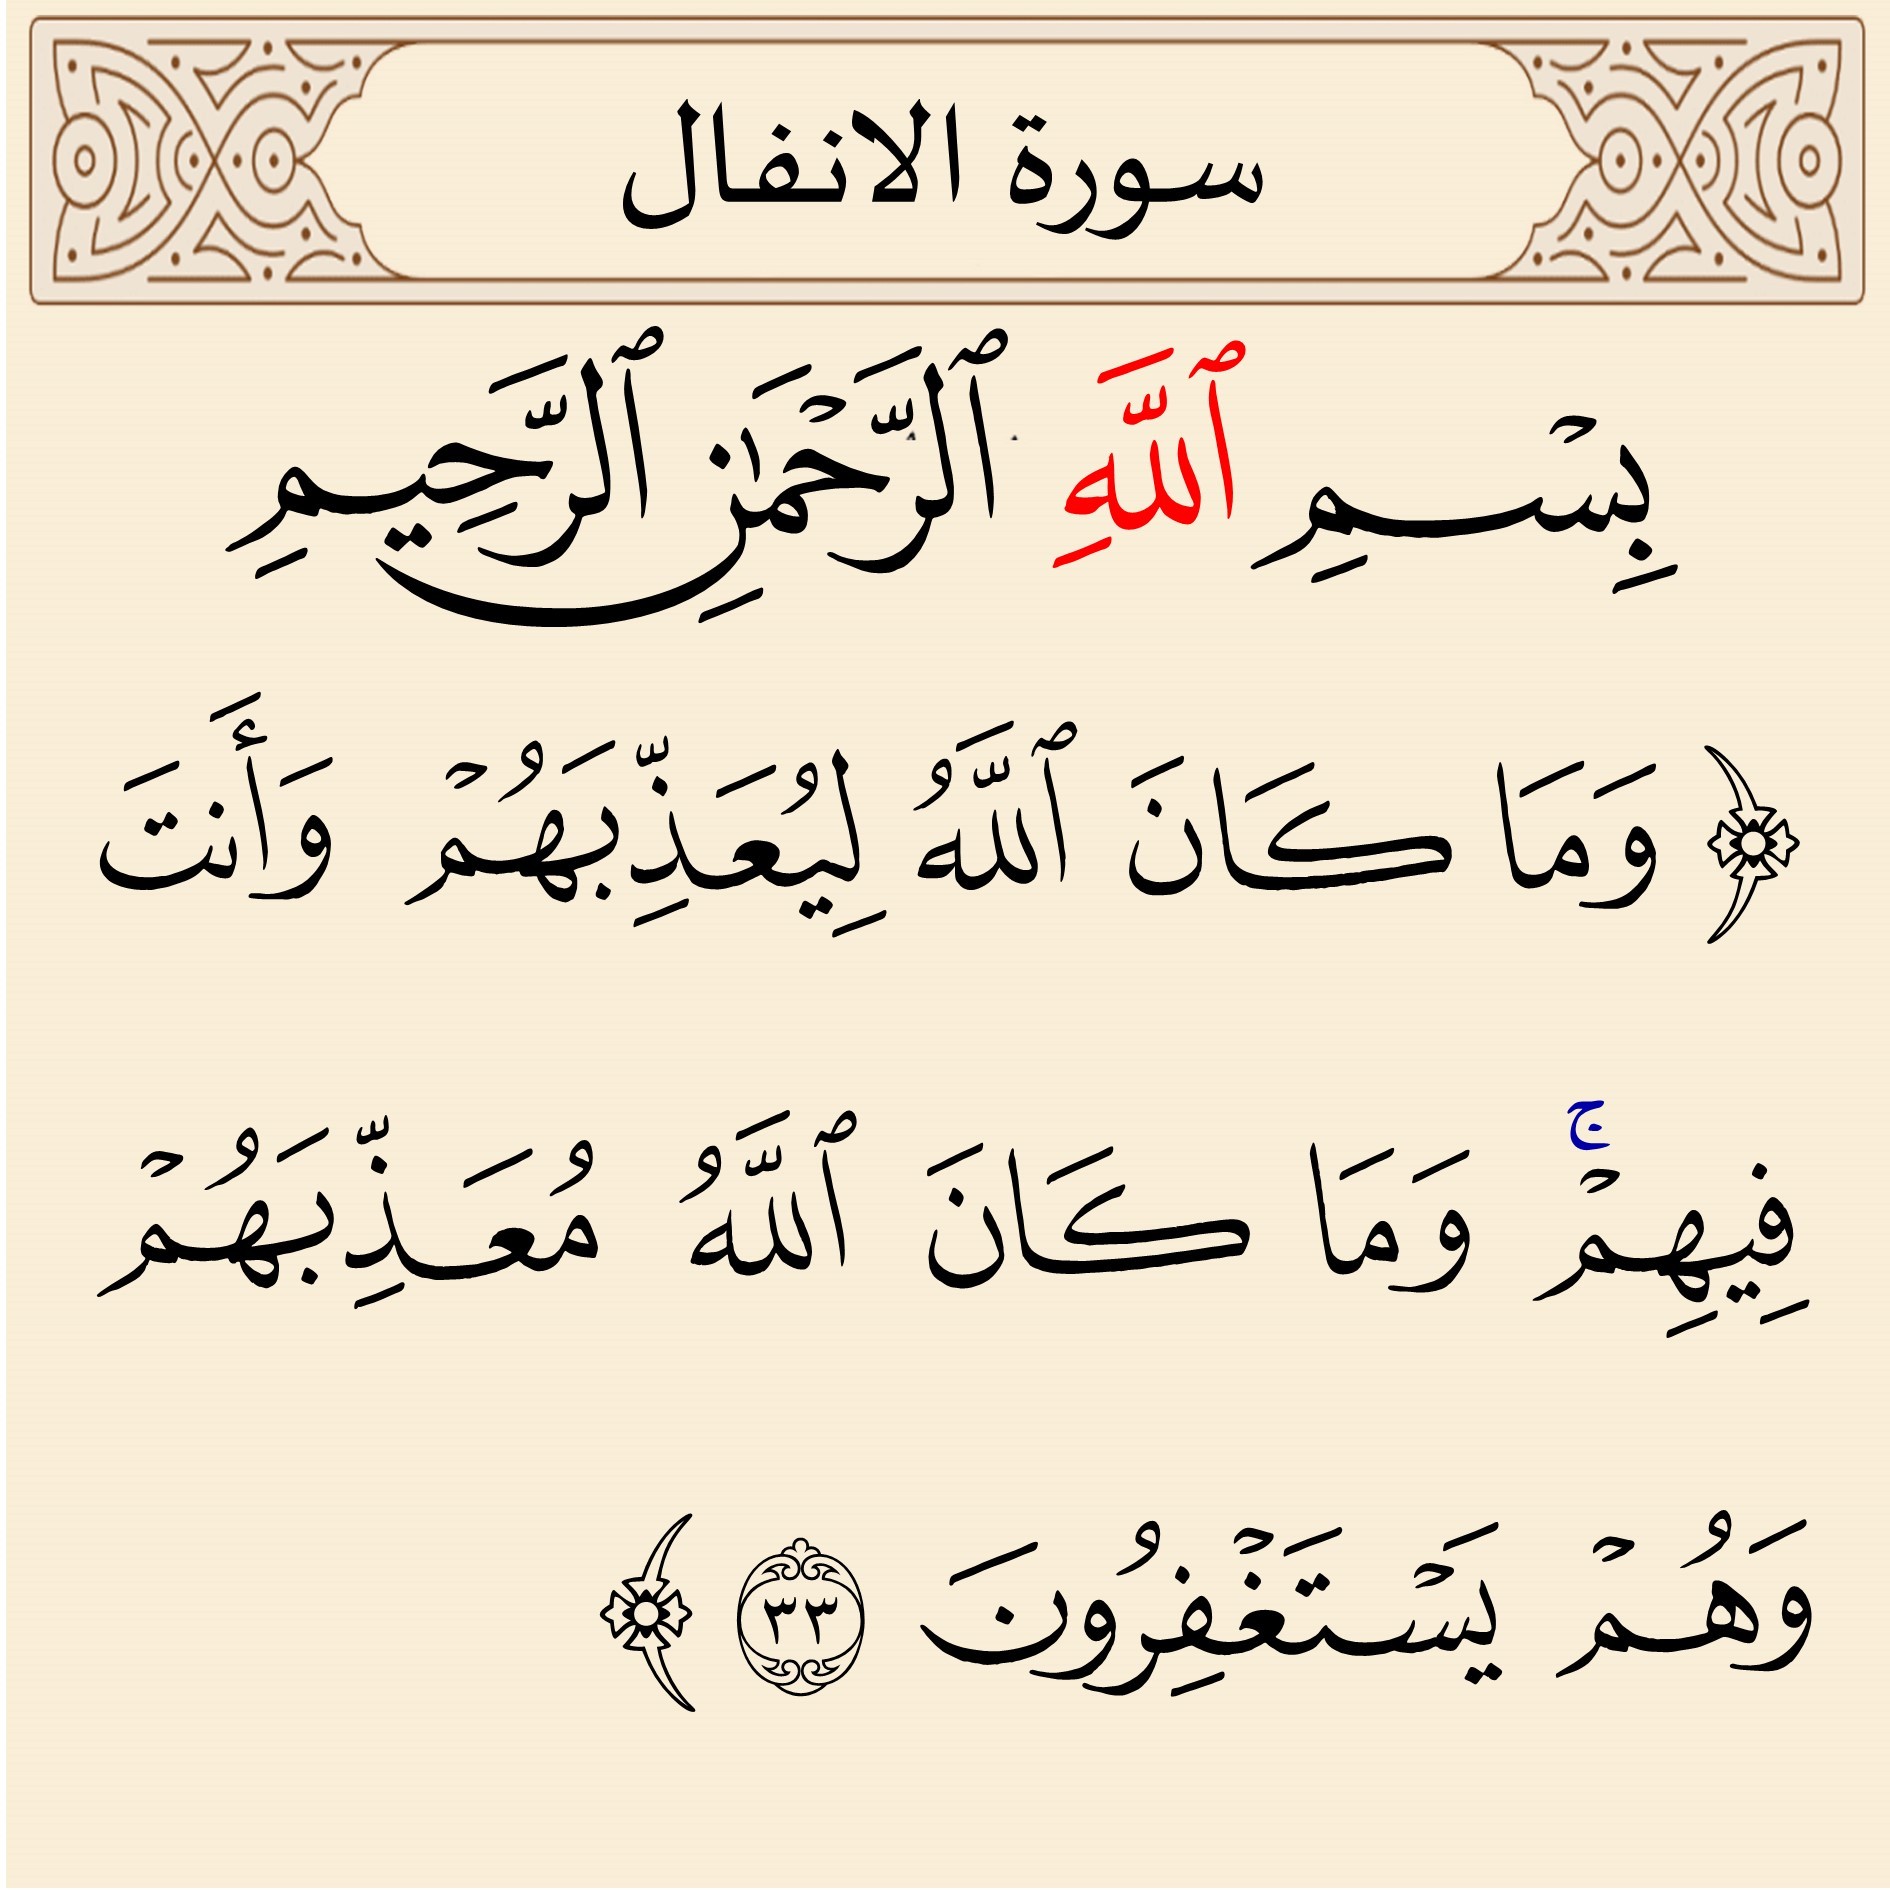 سورة الانفال
بِسْمِ ٱللَّهِ ٱلرَّحْمَٰنِ ٱلرَّحِيمِ
﴿ وَمَا كَانَ ٱللَّهُ لِيُعَذِّبَهُمْ وَأَنتَ
فِيهِمْۚ وَمَا كَانَ ٱللَّهُ مُعَذِّبَهُمْ
وَهُمْ يَسْتَغْفِرُونَ ٣٣ ﴾